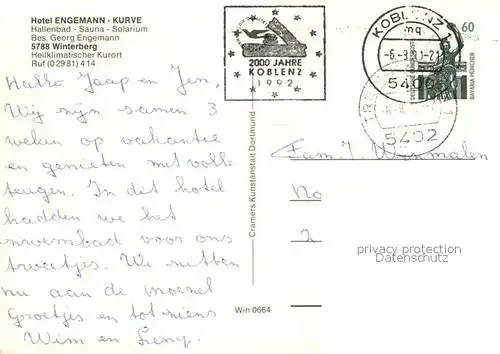 Hotel ENGEMANN - KURVE
Hallenbad - Sauna - Solarium
Bes. Georg Engemann
5788 Winterberg
Heilklimatischer Kurort
Ruf (0 29 81) 4 14
Hallo Jaap en Jen,
Wij zijn samen 3
weken op vakantie
en genieten met volle
teugen. In dit hotel
hadden we het
zwembad voor ons
tweetjes. We zitten
nu aan de moezel
Groetjes en tot ziens
Wim en Leny.
Cramers Kunstanstalt Dortmund
Win 0664
2000 JAHRE
KOBLENZ
1992
KOBLENZ
mq
5400
5402
60
DEUTSCHE BUNDESPOST
BAVARIA MÜNCHEN
Fam J.
No
2
privacy protection
watermark